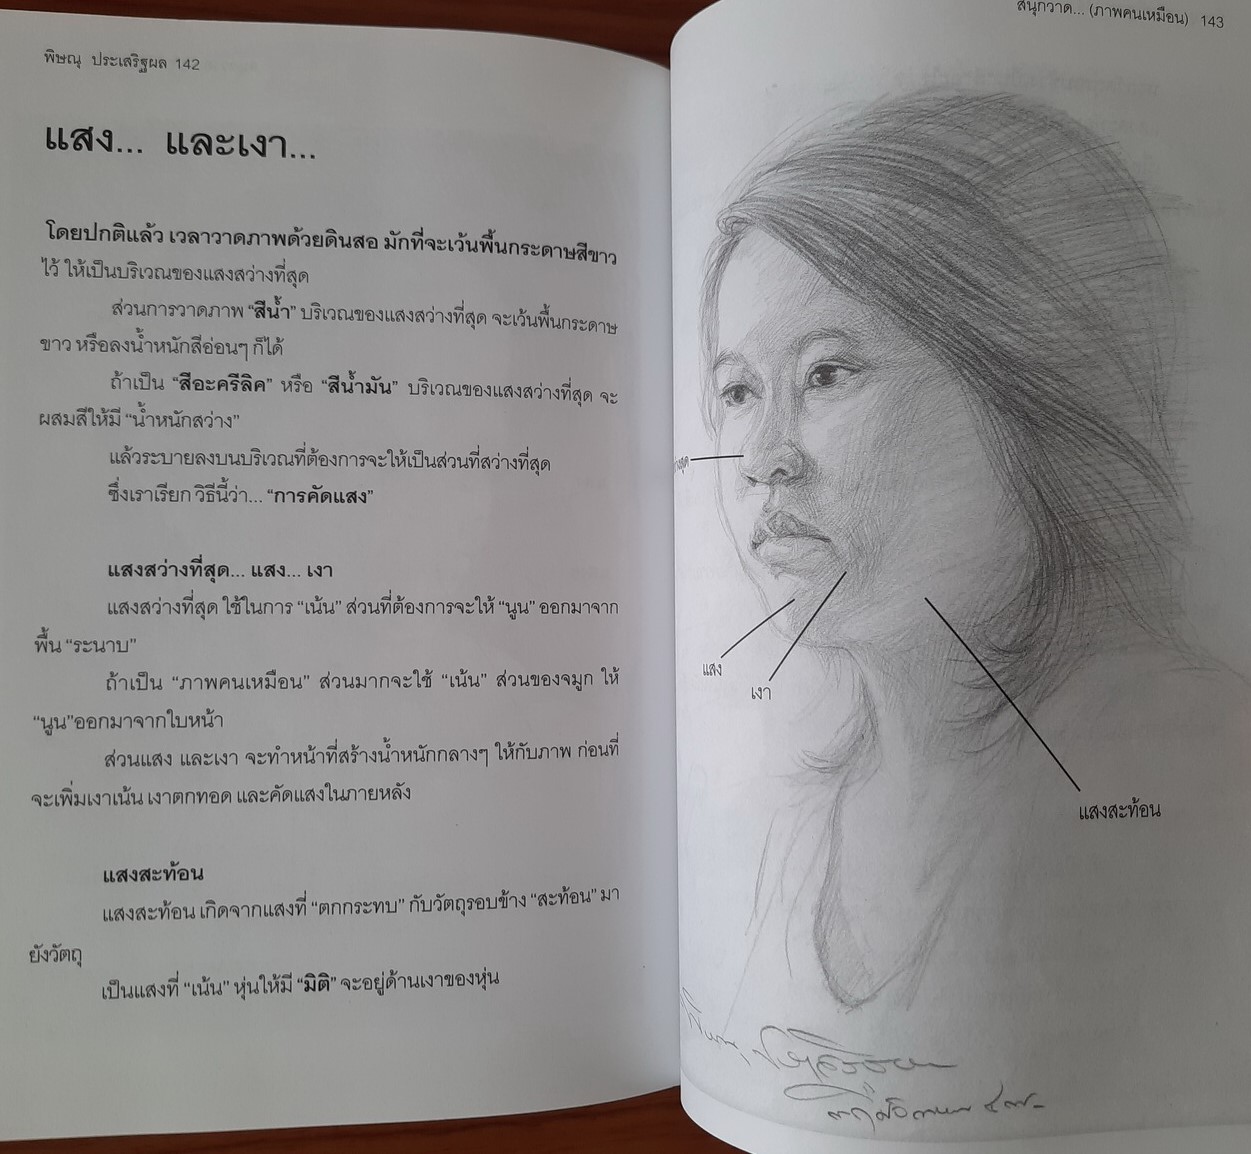 พิษณุ ประเสริฐผล 142
แสง... และเงา...
โดยปกติแล้ว เวลาวาดภาพด้วยดินสอ มักที่จะเว้นพื้นกระดาษสีขาว
ไว้ ให้เป็นบริเวณของแสงสว่างที่สุด
ส่วนการวาดภาพ “สีน้ำ” บริเวณของแสงสว่างที่สุด จะเว้นพื้นกระดาษ
ขาว หรือลงน้ำหนักสีอ่อนๆ ก็ได้
ถ้าเป็น “สีอะครีลิค” หรือ “สีน้ำมัน” บริเวณของแสงสว่างที่สุด จะ
ผสมสีให้มี “น้ำหนักสว่าง”
แล้วระบายลงบนบริเวณที่ต้องการจะให้เป็นส่วนที่สว่างที่สุด
ซึ่งเราเรียก วิธีนี้ว่า... “การคัดแสง”
แสงสว่างที่สุด... แสง... เงา
แสงสว่างที่สุด ใช้ในการ “เน้น” ส่วนที่ต้องการจะให้ “นูน” ออกมาจาก
พื้น “ระนาบ”
ถ้าเป็น “ภาพคนเหมือน” ส่วนมากจะใช้ “เน้น” ส่วนของจมูก ให้
“นูน”ออกมาจากใบหน้า
ส่วนแสง และเงา จะทำหน้าที่สร้างน้ำหนักกลางๆ ให้กับภาพ ก่อนที่
จะเพิ่มเงาเน้น เงาตกทอด และคัดแสงในภายหลัง
แสงสะท้อน
แสงสะท้อน เกิดจากแสงที่ “ตกกระทบ” กับวัตถุรอบข้าง “สะท้อน” มา
ยังวัตถุ
เป็นแสงที่ “เน้น” หุ่นให้มี “มิติ” จะอยู่ด้านเงาของหุ่น
สนุกวาด... (ภาพคนเหมือน) 143
แสง
เงา
แสงสะท้อน